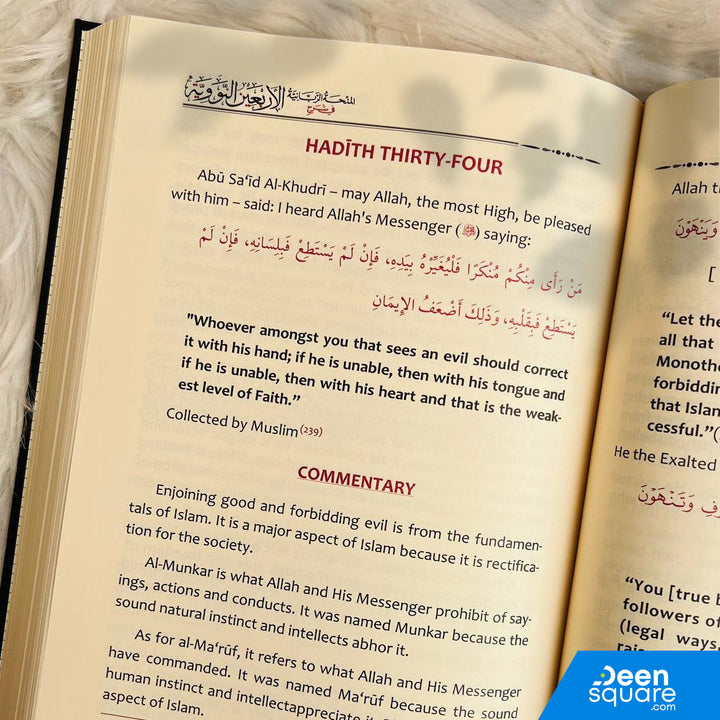 المنحة الربانية في شرح الأربعين النووية
HADĪTH THIRTY-FOUR
Abū Sa‘īd Al-Khudrī – may Allah, the most High, be pleased
with him – said: I heard Allah's Messenger (ﷺ) saying:
مَنْ رَأَى مِنْكُمْ مُنْكَرًا فَلْيُغَيِّرْهُ بِيَدِهِ، فَإِنْ لَمْ يَسْتَطِعْ فَبِلِسَانِهِ، فَإِنْ لَمْ
يَسْتَطِعْ فَبِقَلْبِهِ، وَذَلِكَ أَضْعَفُ الإِيمَانِ
"Whoever amongst you that sees an evil should correct
it with his hand; if he is unable, then with his tongue and
if he is unable, then with his heart and that is the weak-
est level of Faith.”
Collected by Muslim(239)
COMMENTARY
Enjoining good and forbidding evil is from the fundamen-
tals of Islam. It is a major aspect of Islam because it is rectifica-
tion for the society.
Al-Munkar is what Allah and His Messenger prohibit of say-
ings, actions and conducts. It was named Munkar because the
sound natural instinct and intellects abhor it.
As for al-Ma‘rūf, it refers to what Allah and His Messenger
have commanded. It was named Ma‘rūf because the sound
human instinct and intellectappreciate it.
aspect of Islam.
Allah
وَيَنْهَوْنَ
[
“Let the
all that
Monothe
forbiddin
that Islam
cessful.”(
He the Exalted
وَتَنْهَوْنَ
“You [true
followers of
(legal ways
Deen
square
.com